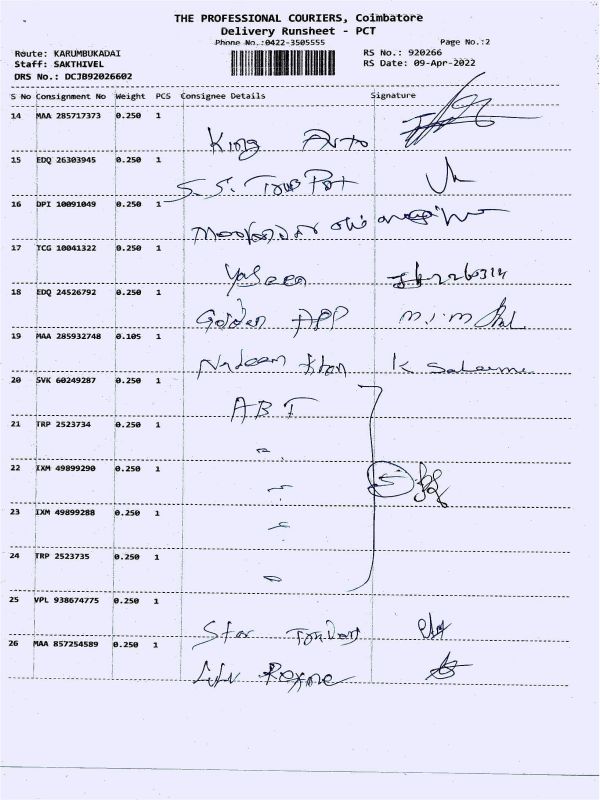 THE PROFESSIONAL COURIERS, Coimbatore
Delivery Runsheet - PCT
Phone No.:0422-3505555 Page No.:2
Route: KARUMBUKADAI RS No.: 920266
Staff: SAKTHIVEL RS Date: 09-Apr-2022
DRS No.: DCJB92026602
S No Consignment No Weight PCS Consignee Details Signature
14 MAA 285717373 0.250 1
King Auto
15 EDQ 26303945 0.250 1
S.S. Trans Port
16 DPI 10091049 0.250 1
17 TCG 10041322 0.250 1
Yaseen
18 EDQ 24526792 0.250 1
Golden APP M.I.M
19 MAA 285932748 0.105 1
Nadeem Khan K
20 SVK 60249287 0.250 1
ABT
21 TRP 2523734 0.250 1
22 IXM 49899290 0.250 1
5
23 IXM 49899288 0.250 1
24 TRP 2523735 0.250 1
25 VPL 938674775 0.250 1
Star
26 MAA 857254589 0.250 1